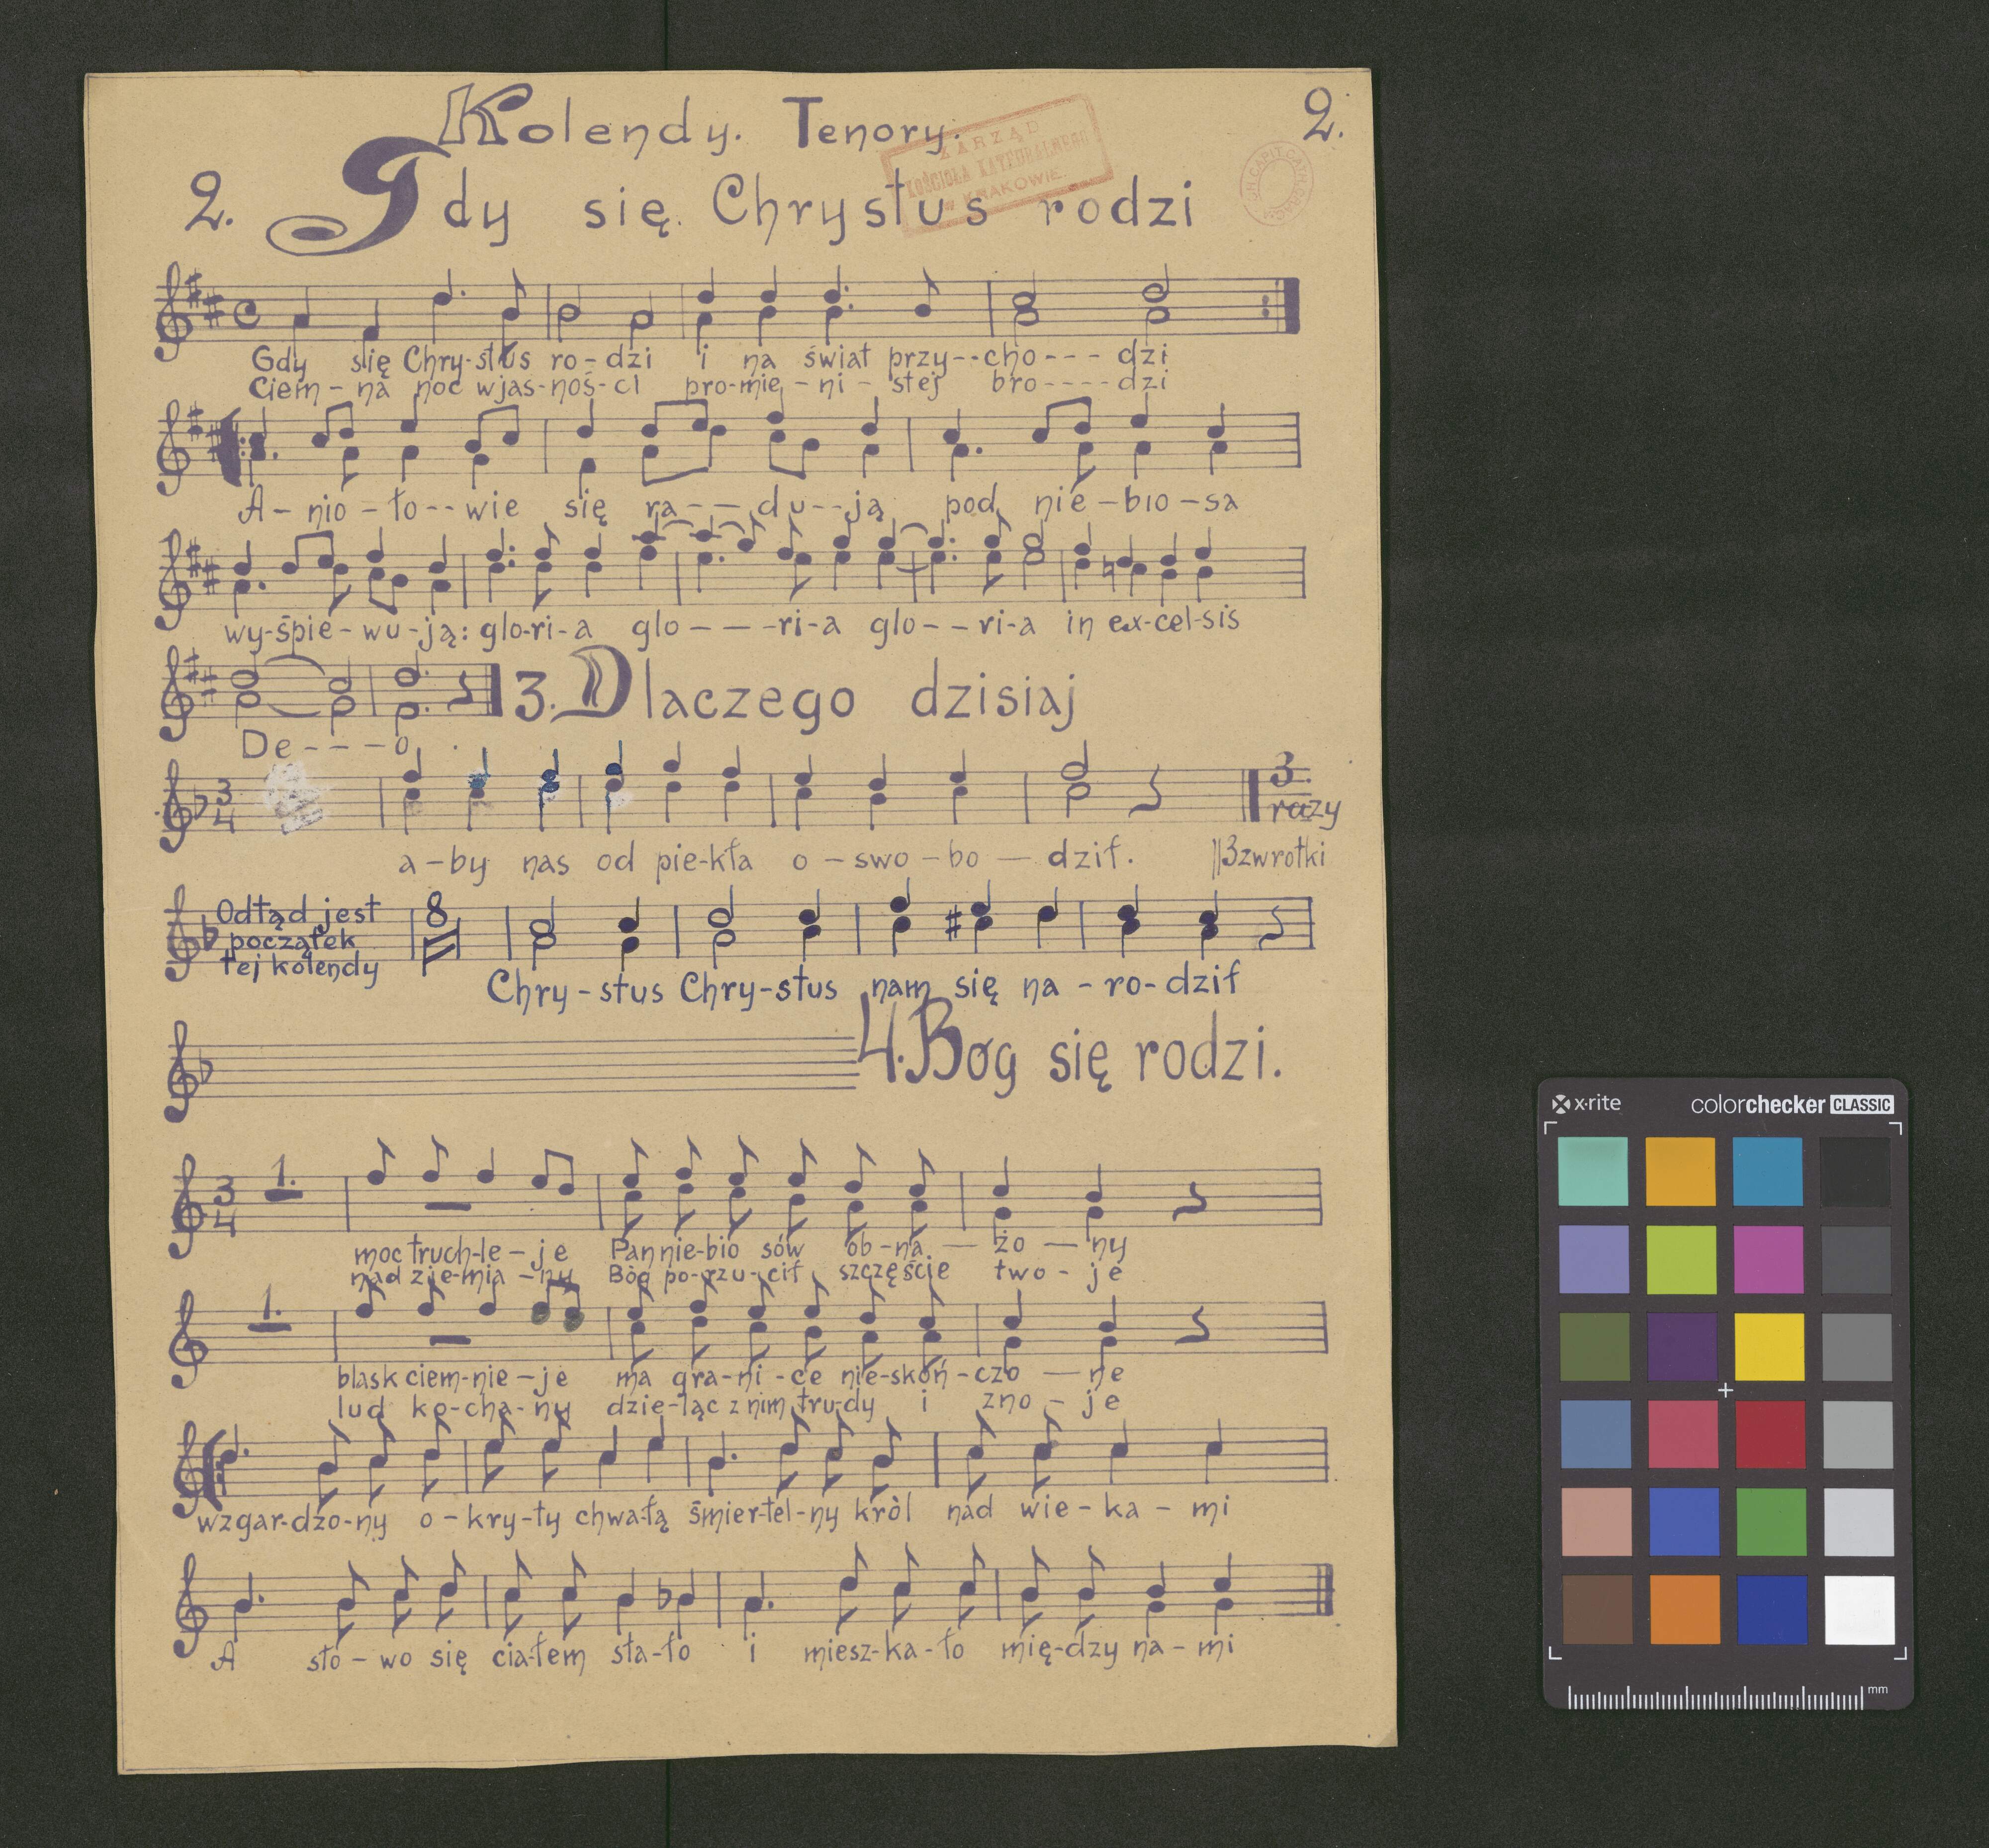 Kolendy. Tenory. 2.
ZARZĄD
KOŚCIOŁA KATEDRALNEGO
W KRAKOWIE.
2. Gdy się Chrystus rodzi
Gdy się Chry-stus ro-dzi i na świat przy--cho---dzi
Ciem-na noc wjas-noś-ci pro-mie-ni-stej bro----dzi
A-nio-ło--wie się ra---du--ją pod nie-bio-sa
wy-śpie-wu-ją: glo-ri-a glo----ri-a glo---ri-a in ex-cel-sis
3. Dlaczego dzisiaj
De----o
3
4
3.
razy
a-by nas od pie-kła o-swo-bo-dził. ||3zwrotki
Odtąd jest
początek
tej kolendy
8
Chry-stus Chry-stus nam się na-ro-dził
4. Bóg się rodzi.
3
4
1.
moc truch-le-je Pan nie-bio sów ob-na-żo-ny
nad zie-mia-ny Bóg po-rzu-cił szczęście two-je
1.
blask ciem-nie-je ma gra-ni-ce nie-skoń-czo-ne
lud ko-cha-ny dzie-ląc z nim tru-dy i zno-je
wzgar-dzo-ny o-kry-ty chwa-łą śmier-tel-ny król nad wie-ka-mi
A sło-wo się cia-łem sta-ło i miesz-ka-ło mię-dzy na-mi
x·rite colorchecker CLASSIC
mm